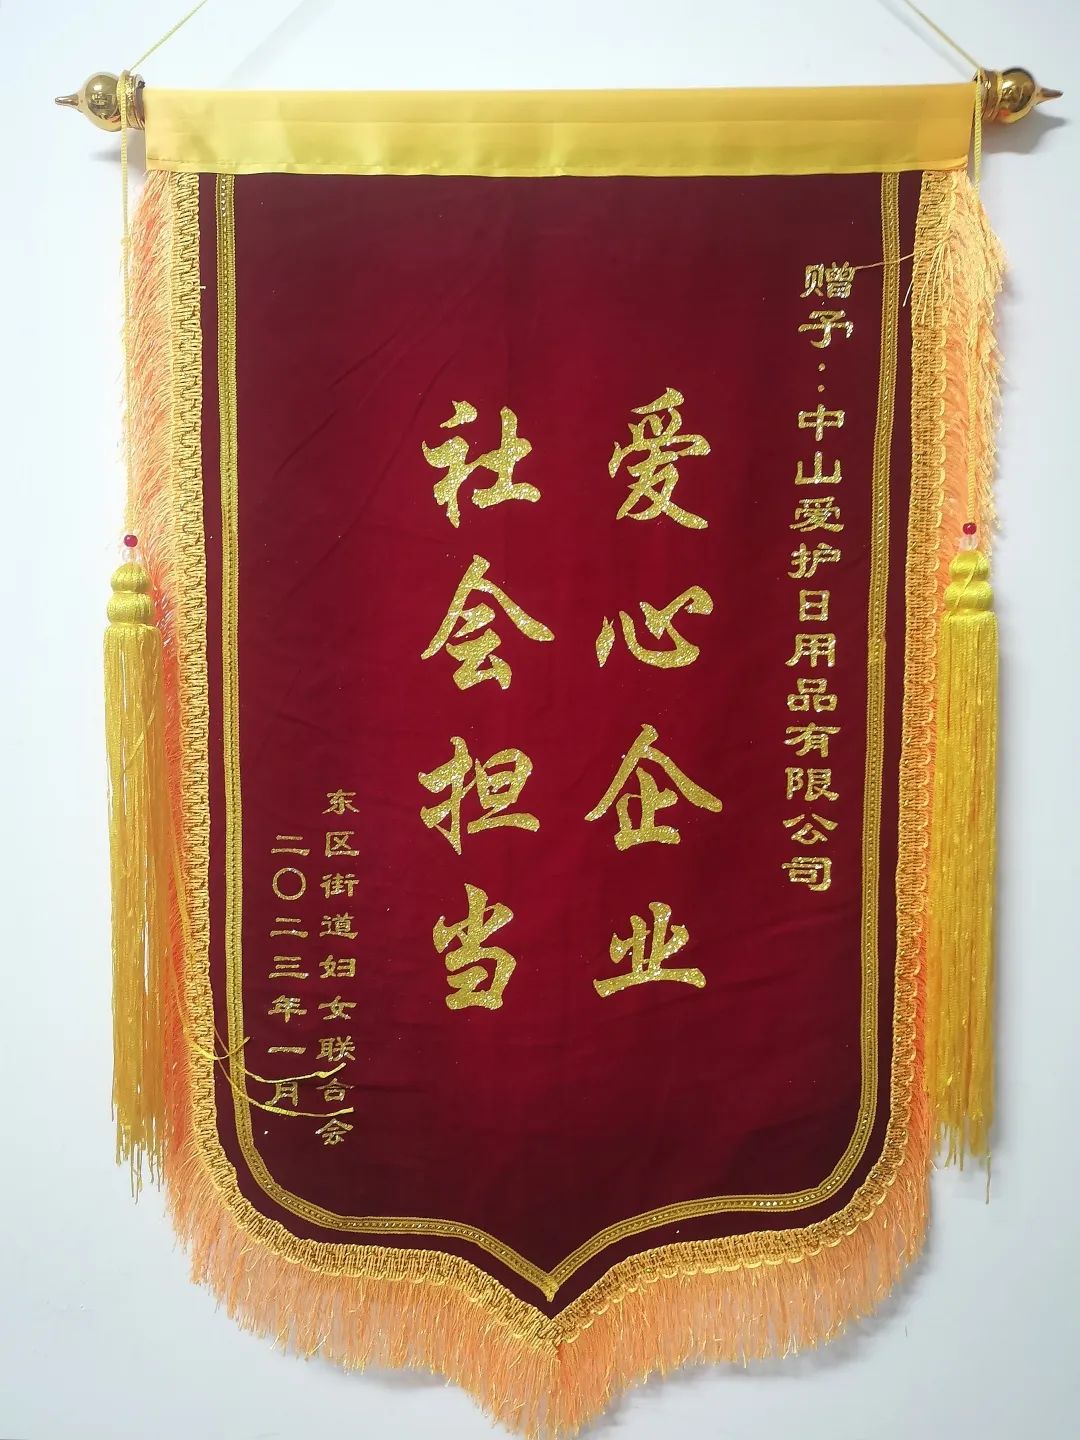 赠予：中山爱护日用品有限公司
爱心企业
社会担当
东区街道妇女联合会
二〇二三年一月